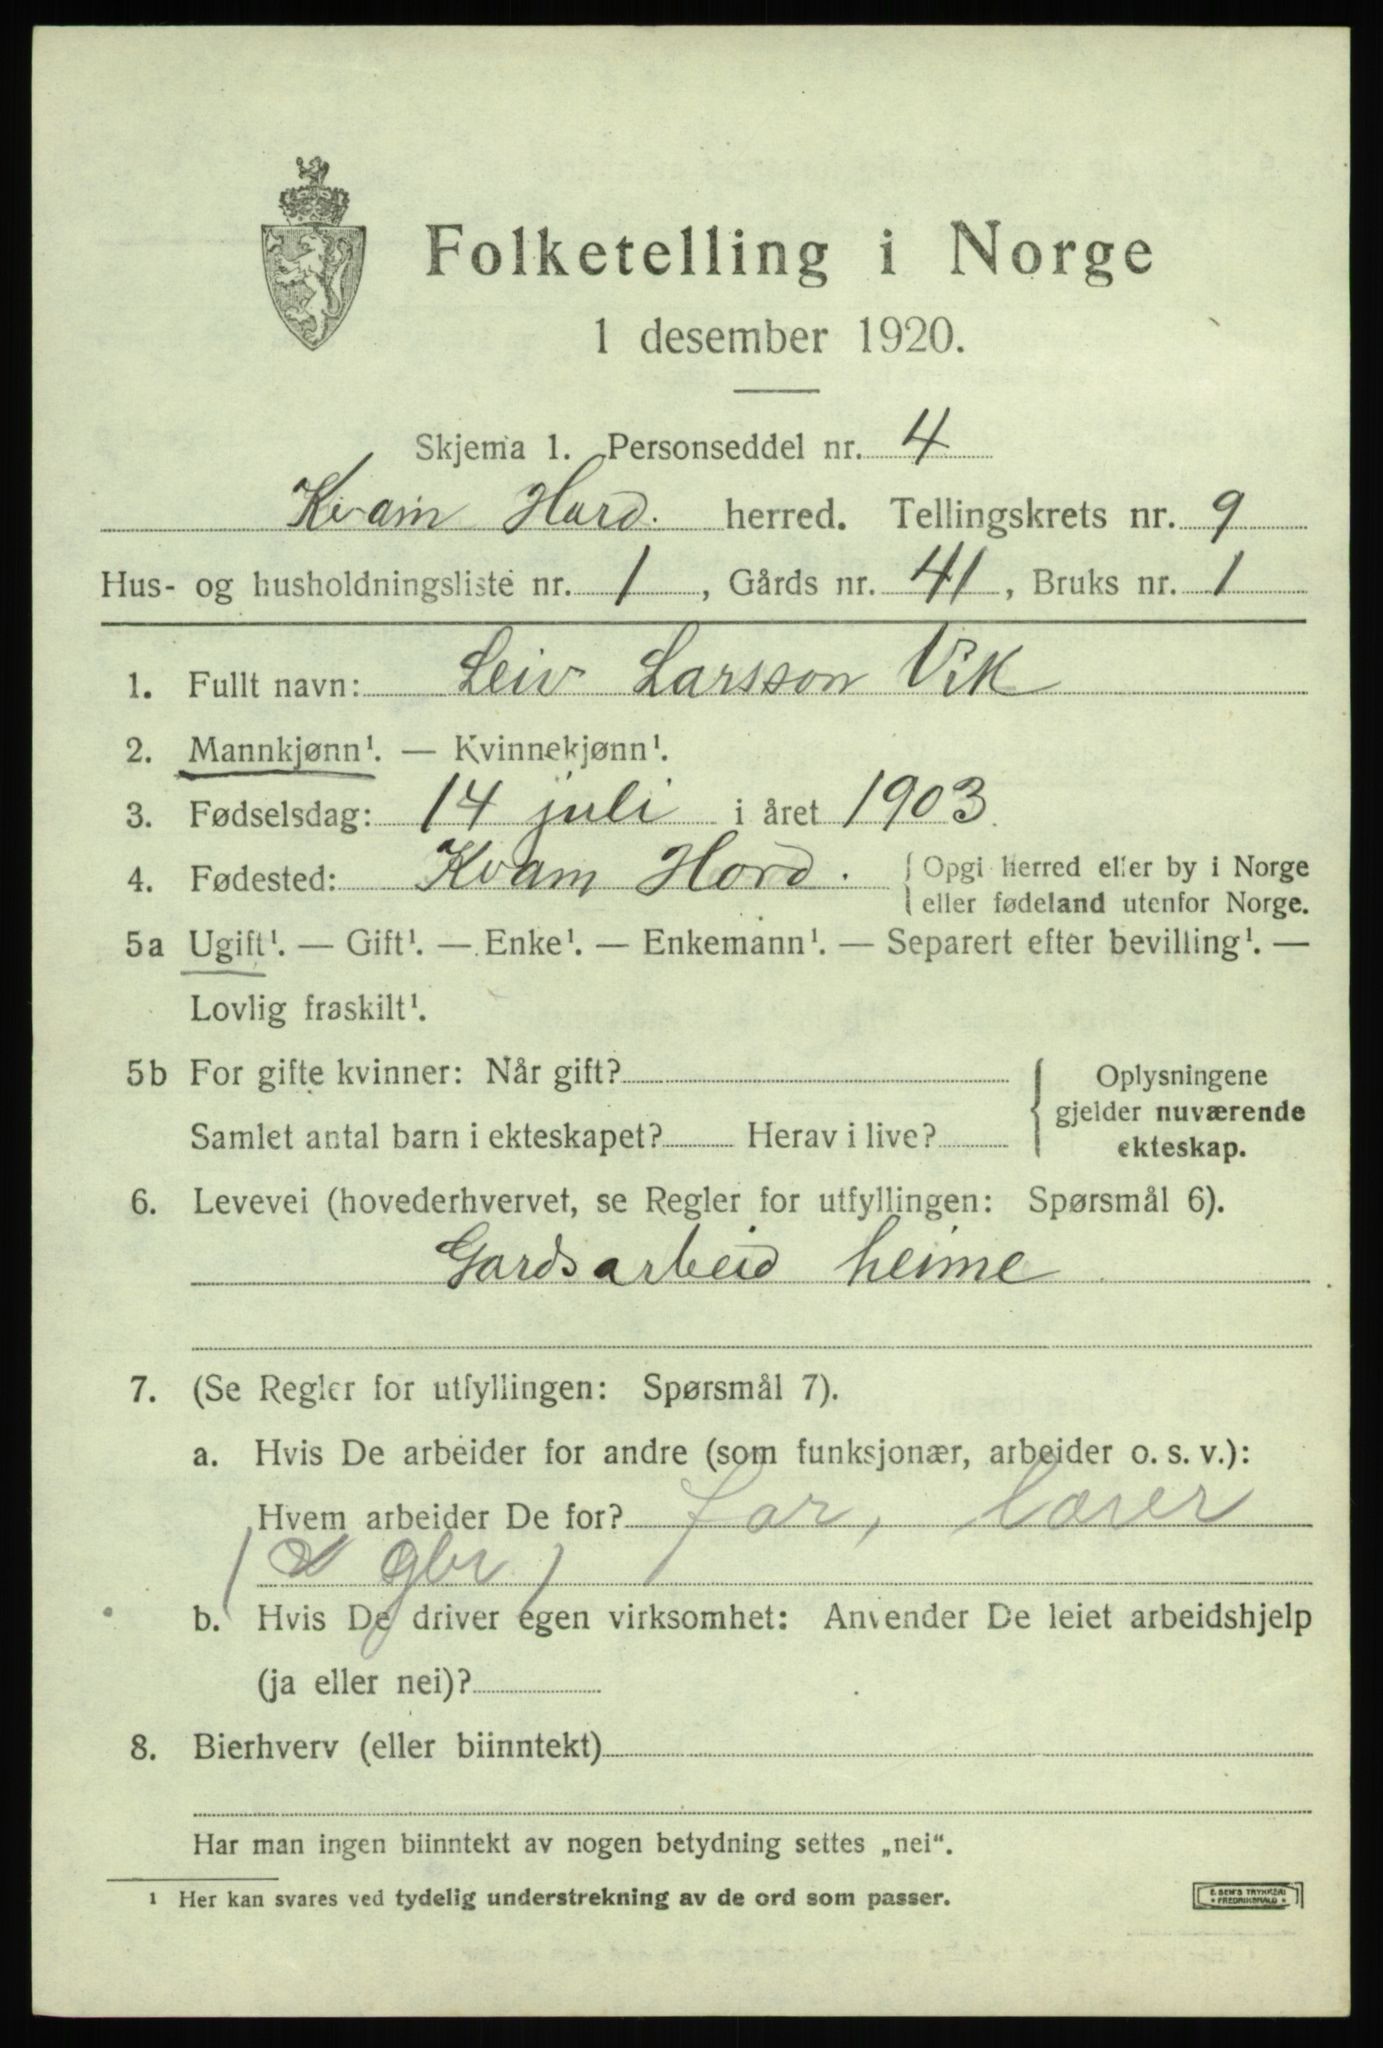 Folketelling i Norge
1 desember 1920.
Skjema 1. Personseddel nr. 4
Kvam Hard. herred. Tellingskrets nr. 9
Hus- og husholdningsliste nr. 1, Gårds nr. 41, Bruks nr. 1
1. Fullt navn: Leiv Larsson Vik
2. Mannkjønn¹. — Kvinnekjønn¹.
3. Fødselsdag: 14 juli i året 1903.
4. Fødested: Kvam Hord. { Opgi herred eller by i Norge
eller fødeland utenfor Norge.
5a Ugift¹. — Gift¹. — Enke¹. — Enkemann¹. — Separert efter bevilling¹. —
Lovlig fraskilt¹.
5b For gifte kvinner: Når gift? { Oplysningene
gjelder nuværende
Samlet antal barn i ekteskapet? Herav i live?
ekteskap.
6. Levevei (hovederhvervet, se Regler for utfyllingen: Spørsmål 6).
Gardsarbeid heime
7. (Se Regler for utfyllingen: Spørsmål 7).
a. Hvis De arbeider for andre (som funksjonær, arbeider o. s. v.):
Hvem arbeider De for? far, lærer
gbr)
b. Hvis De driver egen virksomhet: Anvender De leiet arbeidshjelp
(ja eller nei)?
8. Bierhverv (eller biinntekt)
Har man ingen biinntekt av nogen betydning settes „nei“.
¹ Her kan svares ved tydelig understrekning av de ord som passer.
E. SEM'S TRYKKERI
FREDRIKSHALD